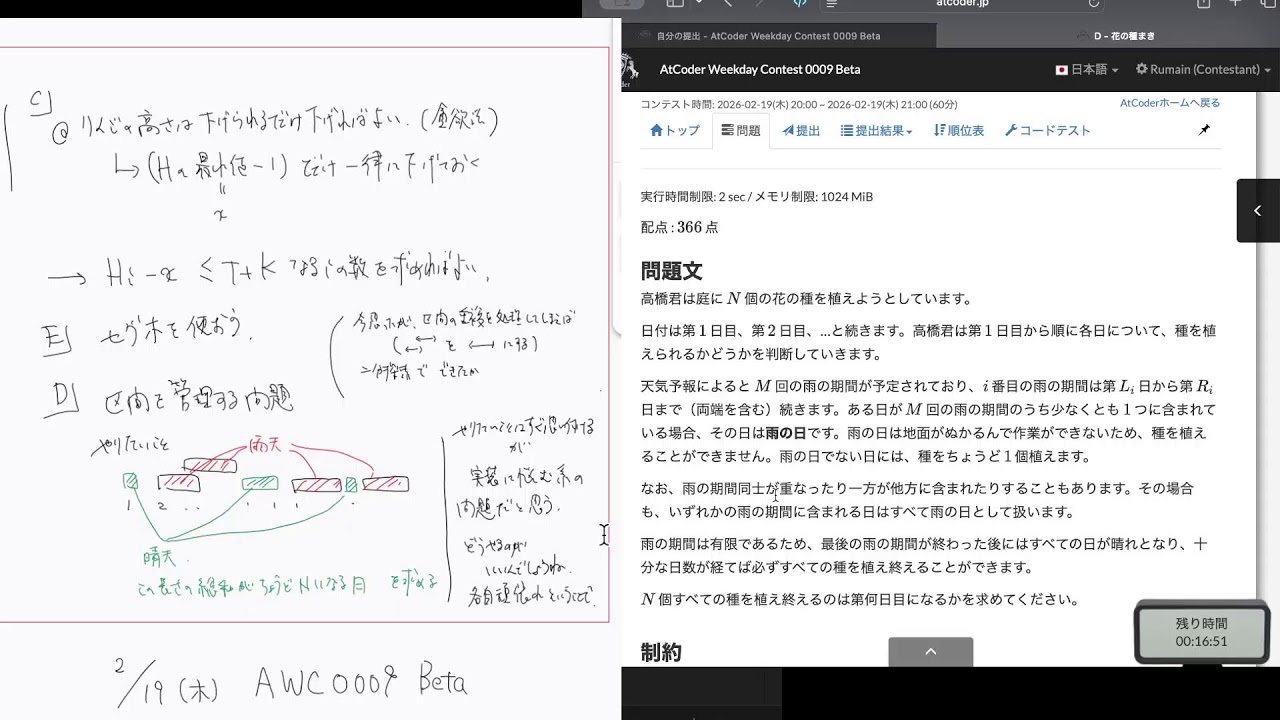 C]
@ りんごの高さは下げられるだけ下げればよい. (貪欲法)
↳ (Hの最小値-1) だけ一律に下げておく
"
x
→ Hi-x ≤ T+K なるiの数を求めればよい.
E] セグ木を使おう.
今思ったが, 区間の重複を処理してしまえば
を にする)
二分探索で できたか
D] 区間を管理する問題
やりたいこと
雨天
1 2 ..
晴天
この長さの総和がちょうどNになる日 を求める
やりたいことはすぐ思い付する
が
実装に悩む系の
問題だと思う.
どうやるのが
いいんでしょうね.
各自頑張れ ということで.
2/19 (木) AWC0009 Beta
atcoder.jp
自分の提出 - AtCoder Weekday Contest 0009 Beta
D - 花の種まき
AtCoder Weekday Contest 0009 Beta
日本語
Rumain (Contestant)
コンテスト時間: 2026-02-19(木) 20:00 ~ 2026-02-19(木) 21:00 (60分)
AtCoderホームへ戻る
トップ 問題 提出 提出結果 順位表 コードテスト
実行時間制限: 2 sec / メモリ制限: 1024 MiB
配点 : 366 点
問題文
高橋君は庭に N 個の花の種を植えようとしています。
日付は第 1 日目、第 2 日目、…と続きます。高橋君は第 1 日目から順に各日について、種を植
えられるかどうかを判断していきます。
天気予報によると M 回の雨の期間が予定されており、i 番目の雨の期間は第 Li 日から第 Ri
日まで（両端を含む）続きます。ある日が M 回の雨の期間のうち少なくとも 1 つに含まれて
いる場合、その日は雨の日です。雨の日は地面がぬかるんで作業ができないため、種を植え
ることができません。雨の日でない日には、種をちょうど 1 個植えます。
なお、雨の期間同士が重なったり一方が他方に含まれたりすることもあります。その場合
も、いずれかの雨の期間に含まれる日はすべて雨の日として扱います。
雨の期間は有限であるため、最後の雨の期間が終わった後にはすべての日が晴れとなり、十
分な日数が経てば必ずすべての種を植え終えることができます。
N 個すべての種を植え終えるのは第何日目になるかを求めてください。
制約
残り時間
00:16:51